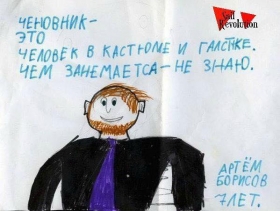 ЧЕНОВНИК-
ЭТО
ЧЕЛОВЕК В КАСТЮМЕ И ГАЛСТКЕ.
ЧЕМ ЗАНЕМАЕТСА-НЕ ЗНАЮ.
АРТЁМ
БОРИСОВ
7 ЛЕТ.
Revolution